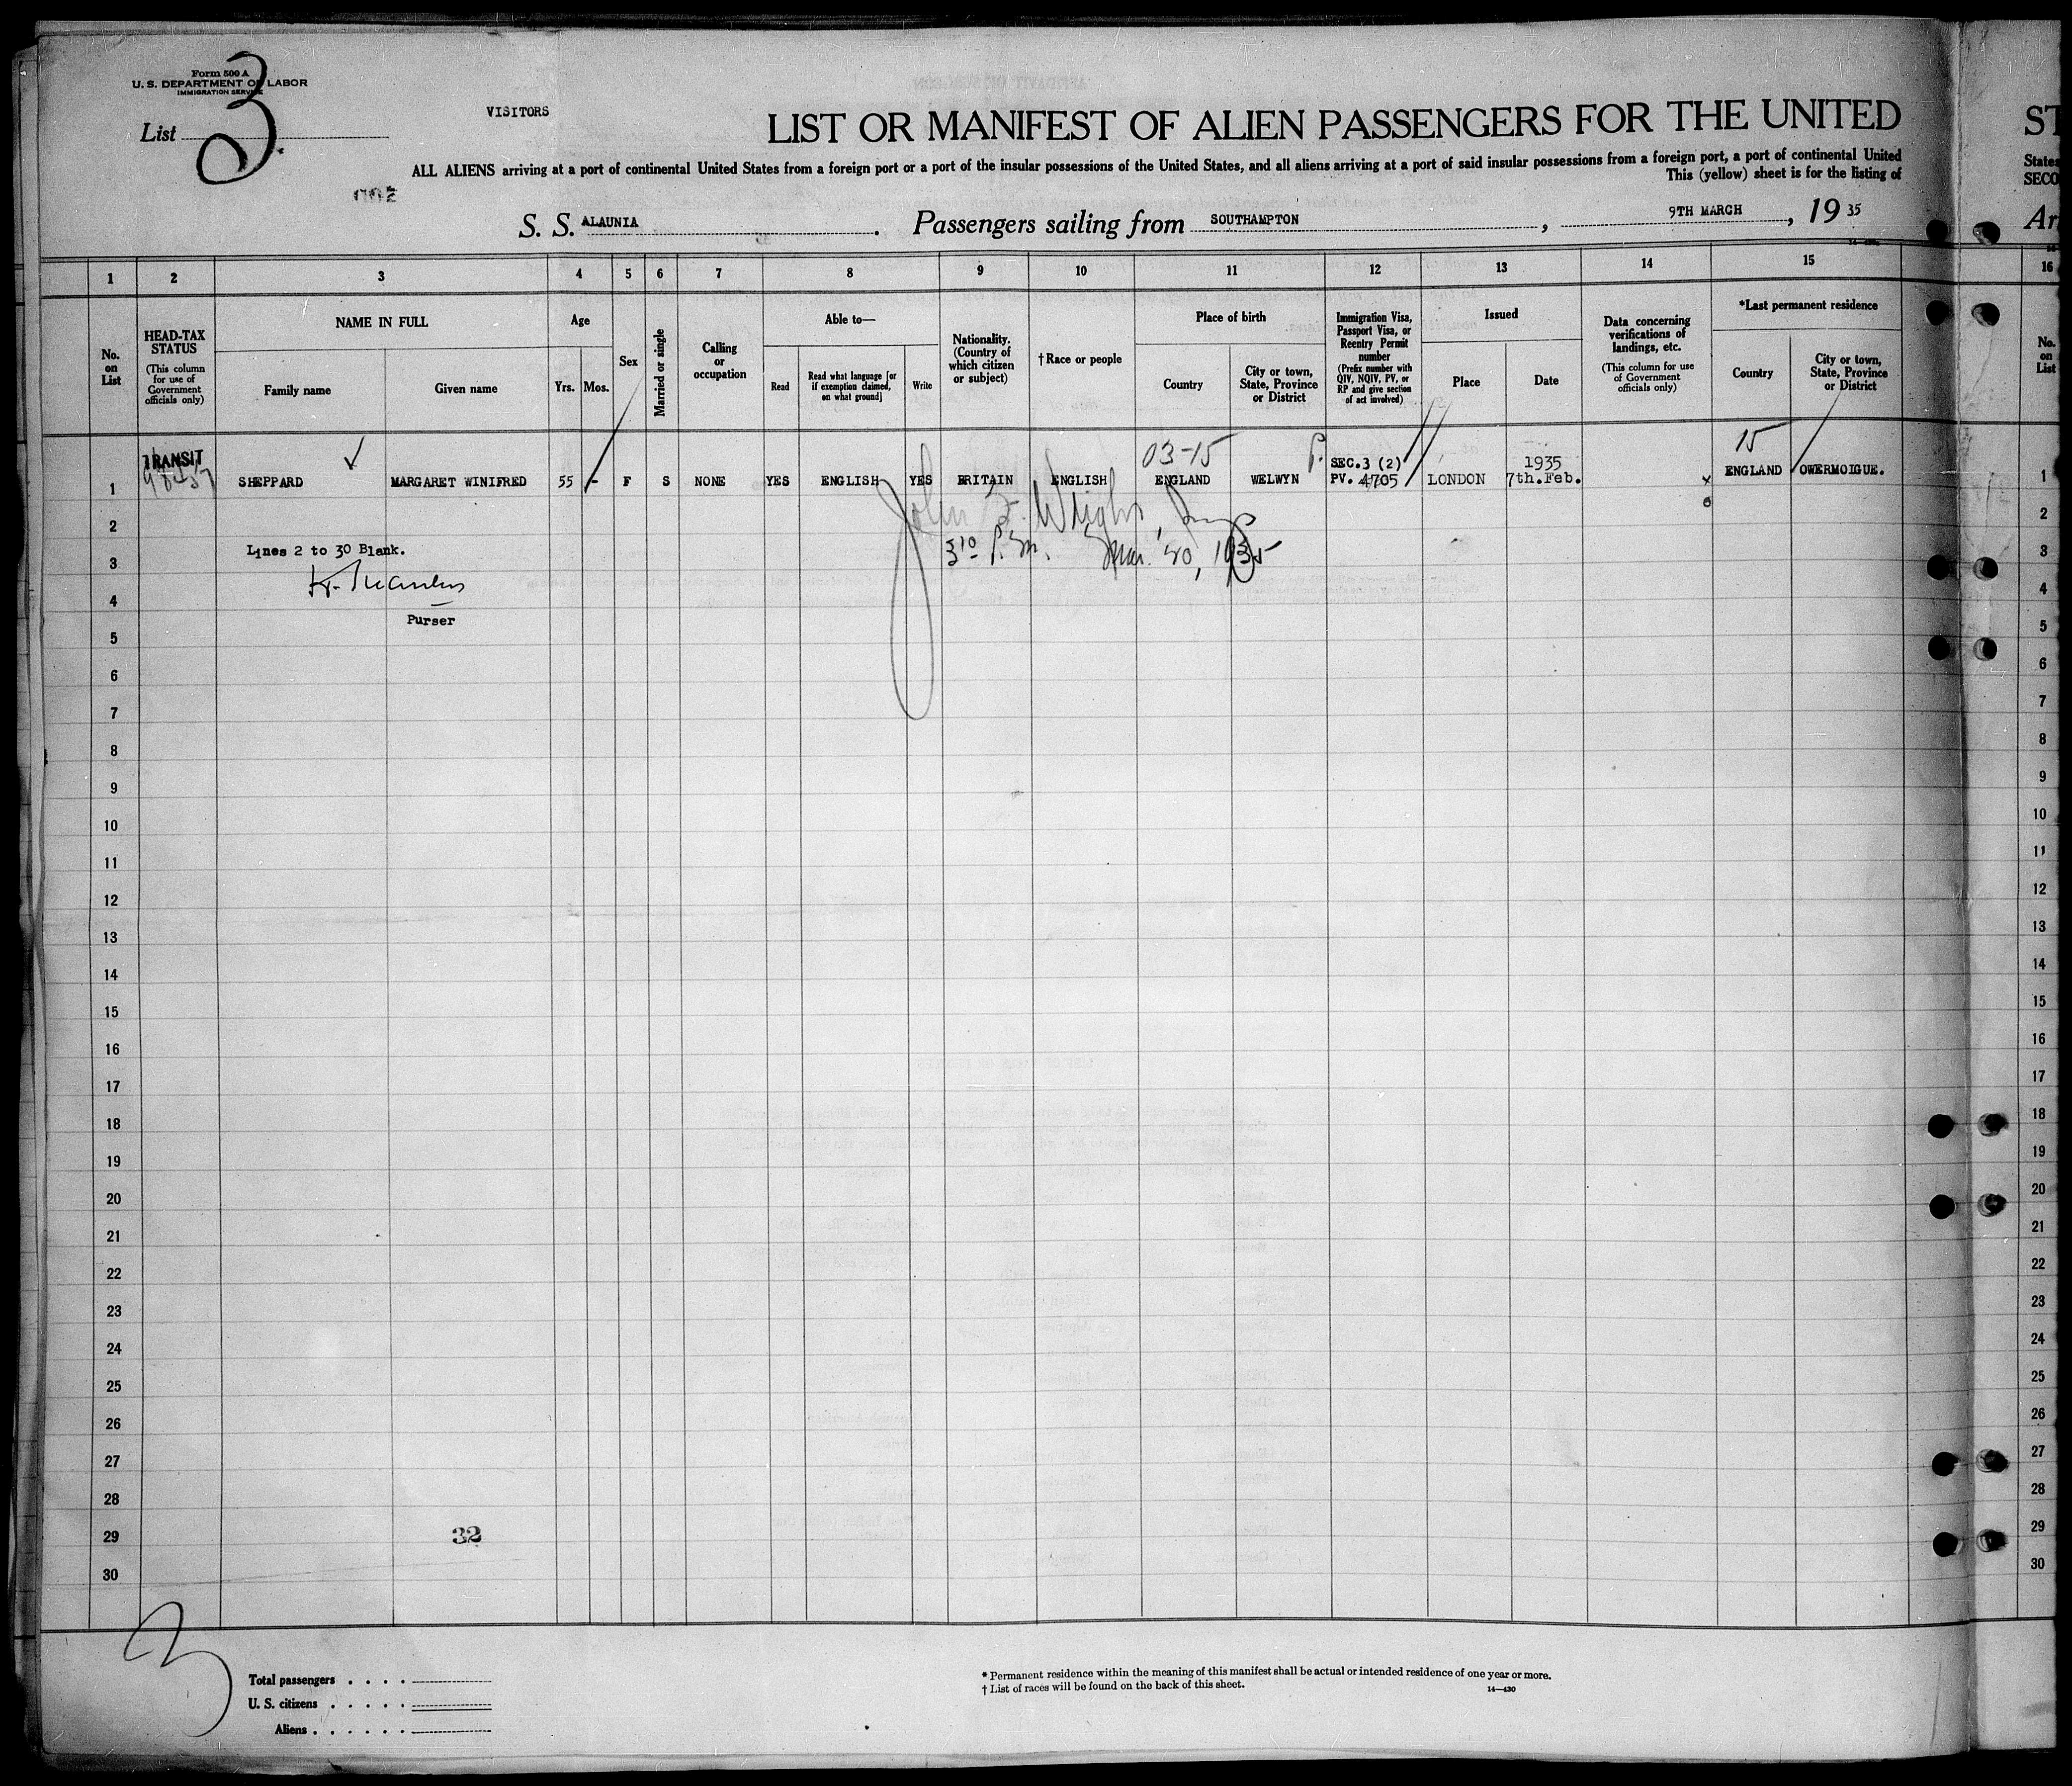 Form 500 A
U. S. DEPARTMENT OF LABOR
IMMIGRATION SERVICE
List 3.
VISITORS
LIST OR MANIFEST OF ALIEN PASSENGERS FOR THE UNITED
ALL ALIENS arriving at a port of continental United States from a foreign port or a port of the insular possessions of the United States, and all aliens arriving at a port of said insular possessions from a foreign port, a port of continental United
This (yellow) sheet is for the listing of
S. S. ALAUNIA. Passengers sailing from SOUTHAMPTON, 9TH MARCH, 19 35
1 2 3 4 5 6 7 8 9 10 11 12 13 14 15
No. on List
HEAD-TAX STATUS
(This column for use of Government officials only)
NAME IN FULL
Family name
Given name
Age
Yrs. Mos.
Sex
Married or single
Calling or occupation
Able to—
Read
Read what language [or if exemption claimed, on what ground]
Write
Nationality. (Country of which citizen or subject)
†Race or people
Place of birth
Country
City or town, State, Province or District
Immigration Visa, Passport Visa, or Reentry Permit number
(Prefix number with QIV, NQIV, PV, or RP and give section of act involved)
Issued
Place
Date
Data concerning verifications of landings, etc.
(This column for use of Government officials only)
*Last permanent residence
Country
City or town, State, Province or District
TRANSIT
03-15 P. SEC.3 (2) 1935 15
1 SHEPPARD MARGARET WINIFRED 55 - F S NONE YES ENGLISH YES BRITAIN ENGLISH ENGLAND WELWYN PV. 4705 LONDON 7th.Feb. x ENGLAND OWERMOIGUE.
John F. Wright, Insp
2
Lines 2 to 30 Blank.
3¹⁰ P.m. Mar. 20, 1935
3
4
Purser
5
6
7
8
9
10
11
12
13
14
15
16
17
18
19
20
21
22
23
24
25
26
27
28
29 32
30
3
Total passengers
U. S. citizens
Aliens
* Permanent residence within the meaning of this manifest shall be actual or intended residence of one year or more.
† List of races will be found on the back of this sheet.
14—430
ST
States
SECO
Ar
16
No. on List
1
2
3
4
5
6
7
8
9
10
11
12
13
14
15
16
17
18
19
20
21
22
23
24
25
26
27
28
29
30